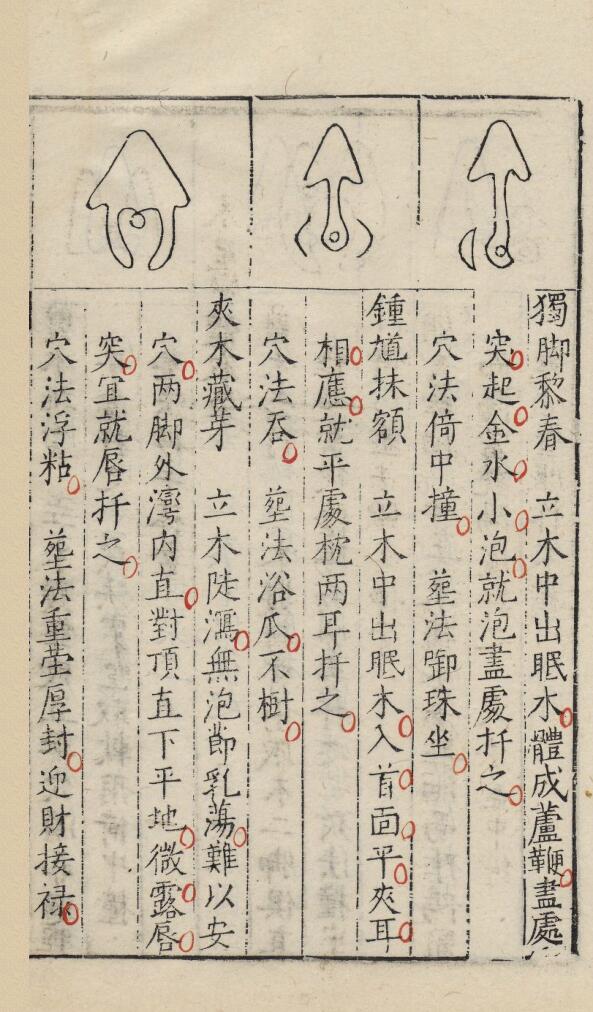 獨脚黎春 立木中出眠水體成蘆鞭盡處
突起金水小泡就泡盡處扦之
穴法倚中撞 塟法啣珠坐
鍾馗抹額 立木中出眠木入首面平夾耳
相應就平處枕两耳扦之
穴法吞 塟法浴瓜不樹
夾木藏芽 立木陡瀉無泡節乳蕩難以安
穴两脚外灣内直對頂直下平地微露唇
突宜就唇扦之
穴法浮粘 塟法重塋厚封迎財接禄